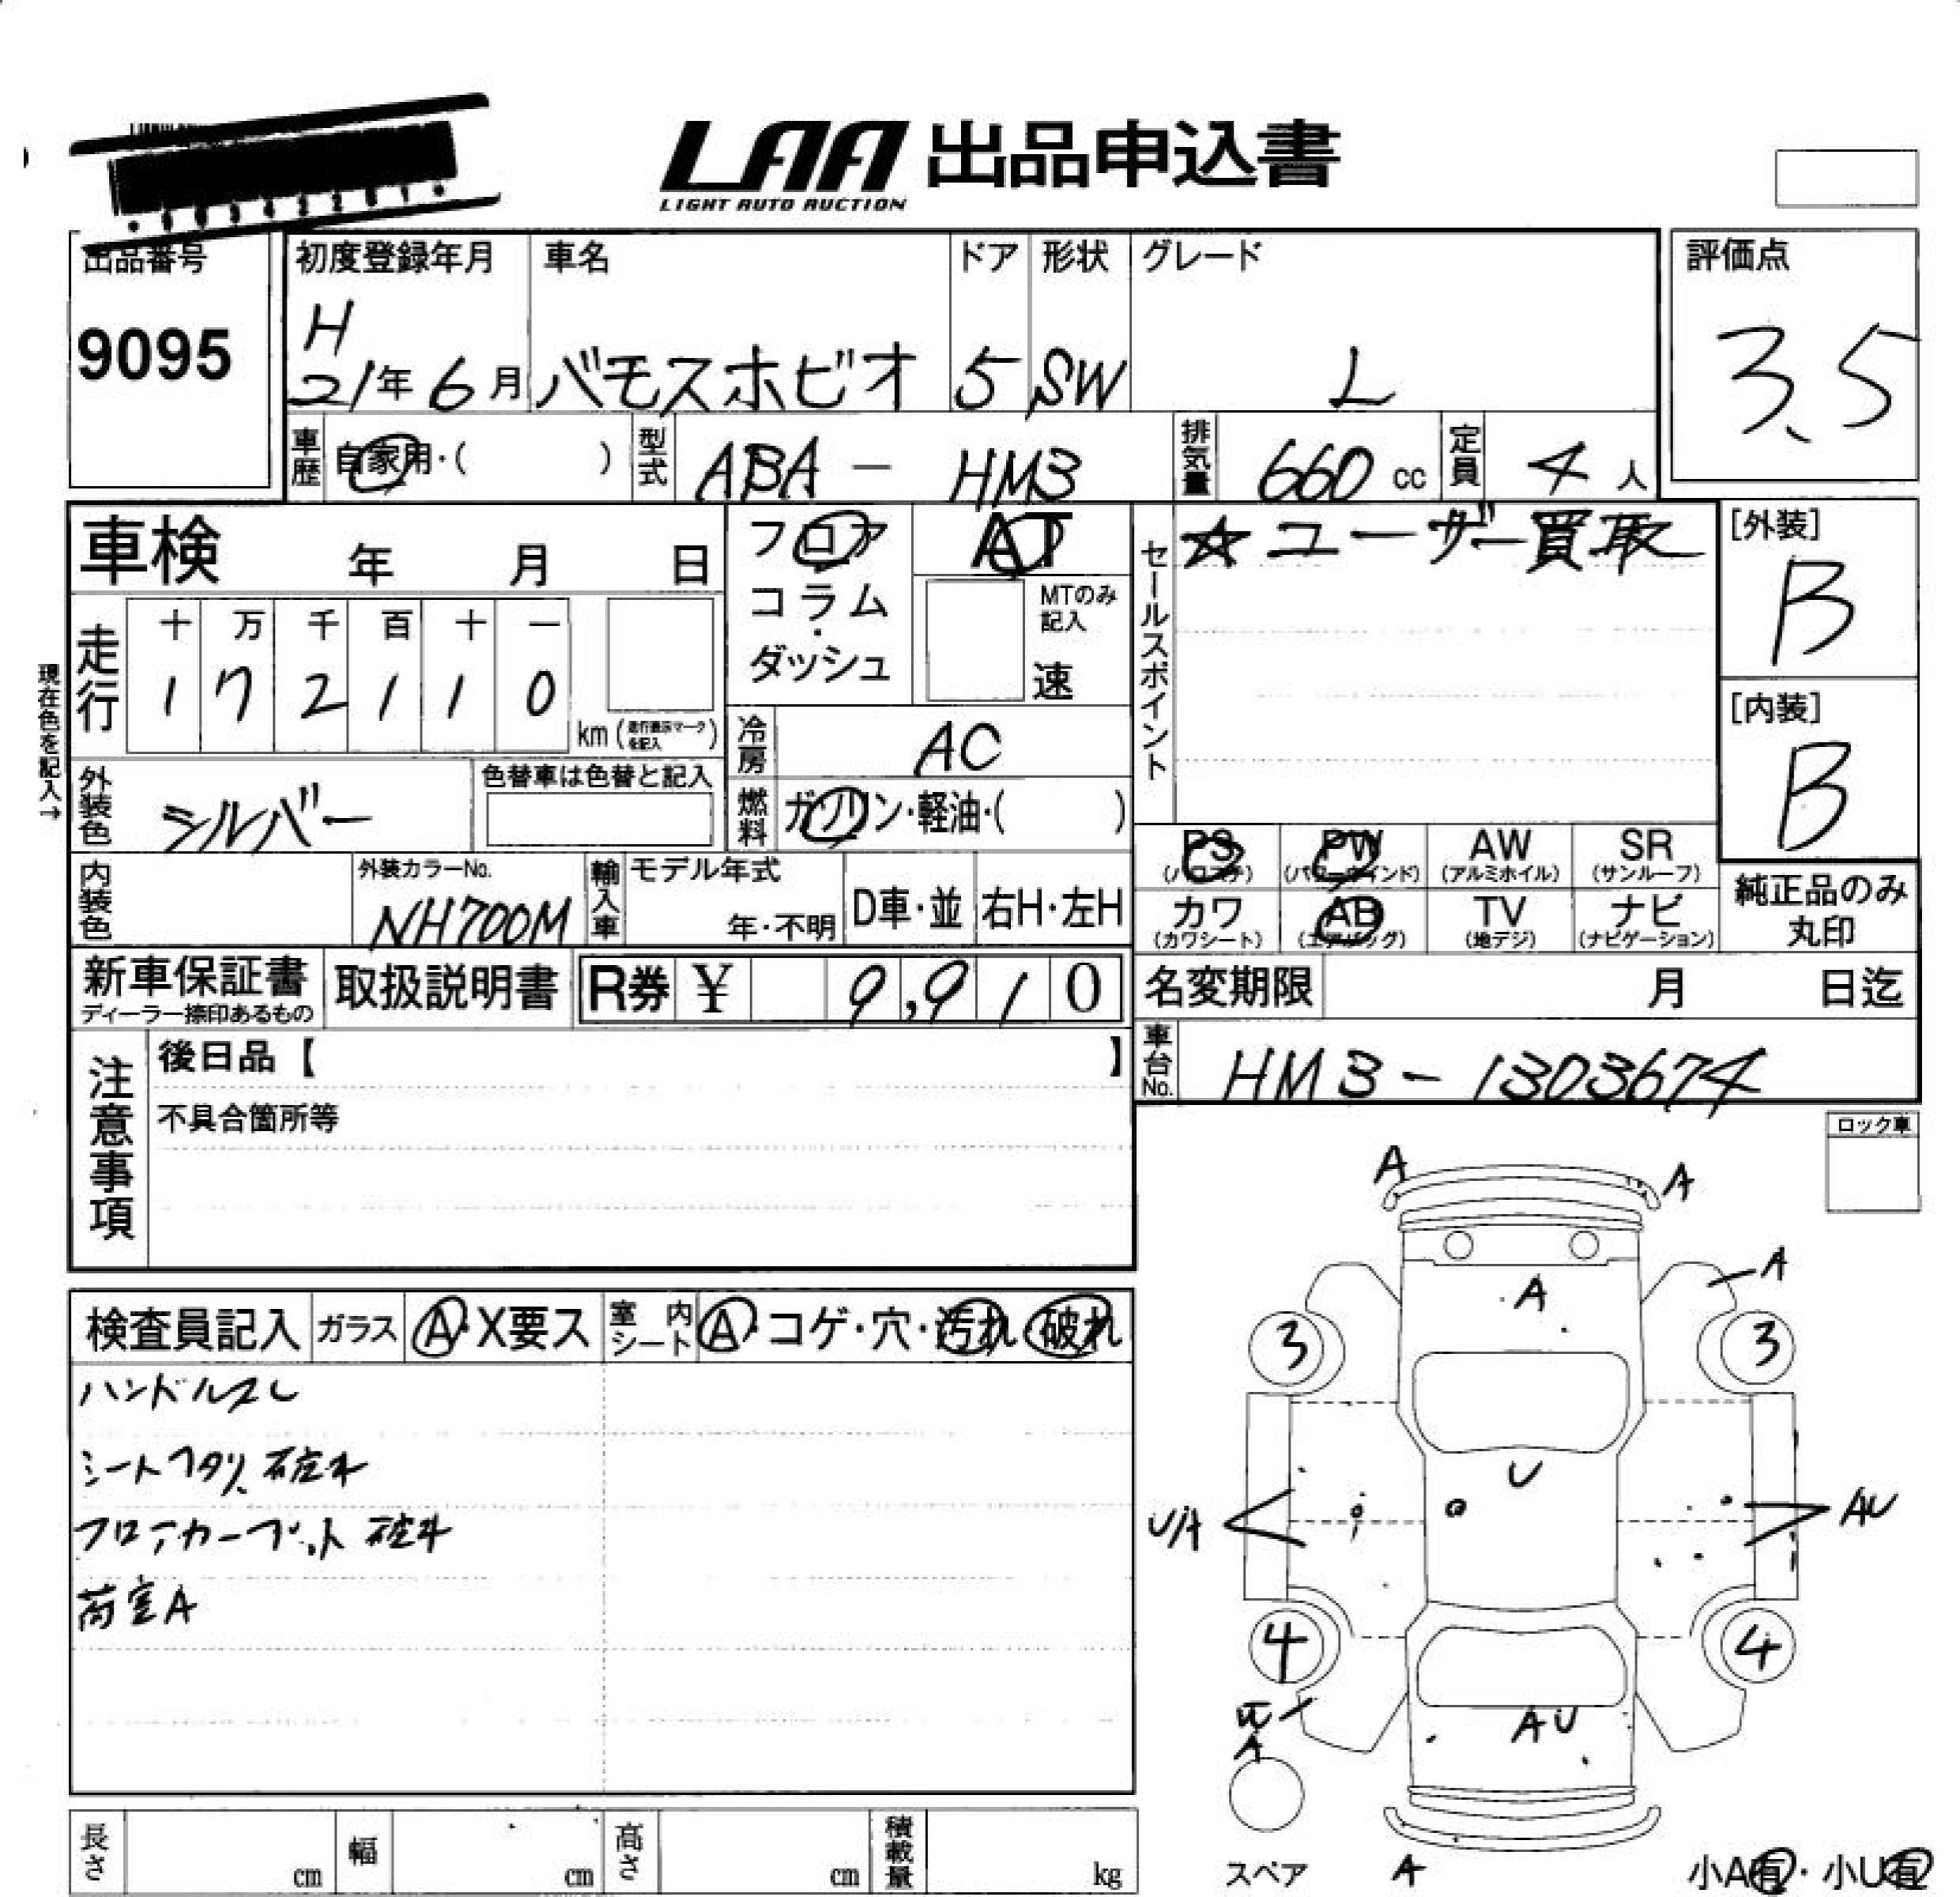 LAA 出品申込書
LIGHT AUTO AUCTION
出品番号
9095
初度登録年月
H
21年 6月
車名
バモスホビオ
ドア
5
形状
SW
グレード
L
評価点
3.5
車歴 自家用・( )
型式 ABA - HM3
排気量 660 cc
定員 4人
車検 年 月 日
フロア
コラム・
ダッシュ
AT
MTのみ記入
速
セールスポイント
☆ユーザー買取
[外装]
B
[内装]
B
現在色を記入→
走行
十 万 千 百 十 一
1 7 2 1 1 0
km (走行表示マークを記入)
冷房 AC
燃料 ガソリン・軽油・( )
外装色 シルバー
色替車は色替と記入
内装色
外装カラーNo.
NH700M
輸入車
モデル年式
年・不明
D車・並
右H・左H
PS (パワステ)
PW (パワーウインド)
AW (アルミホイル)
SR (サンルーフ)
カワ (カワシート)
AB (エアバッグ)
TV (地デジ)
ナビ (ナビゲーション)
純正品のみ
丸印
新車保証書
ディーラー捺印あるもの
取扱説明書
R券 ¥ 9,910
名変期限 月 日迄
車台No. HM3-1303674
注意事項
後日品【 】
不具合箇所等
ロック車
検査員記入
ガラス A・X要ス
室内シート A・コゲ・穴・汚れ 破れ
ハンドルスレ
シートヘタリ、破れ
フロアカーペット 破れ
荷室A
A
A
A
A
3
3
U
U/A
AU
4
4
A
AU
A
スペア
小A有・小U有
長さ cm
幅 cm
高さ cm
積載量 kg